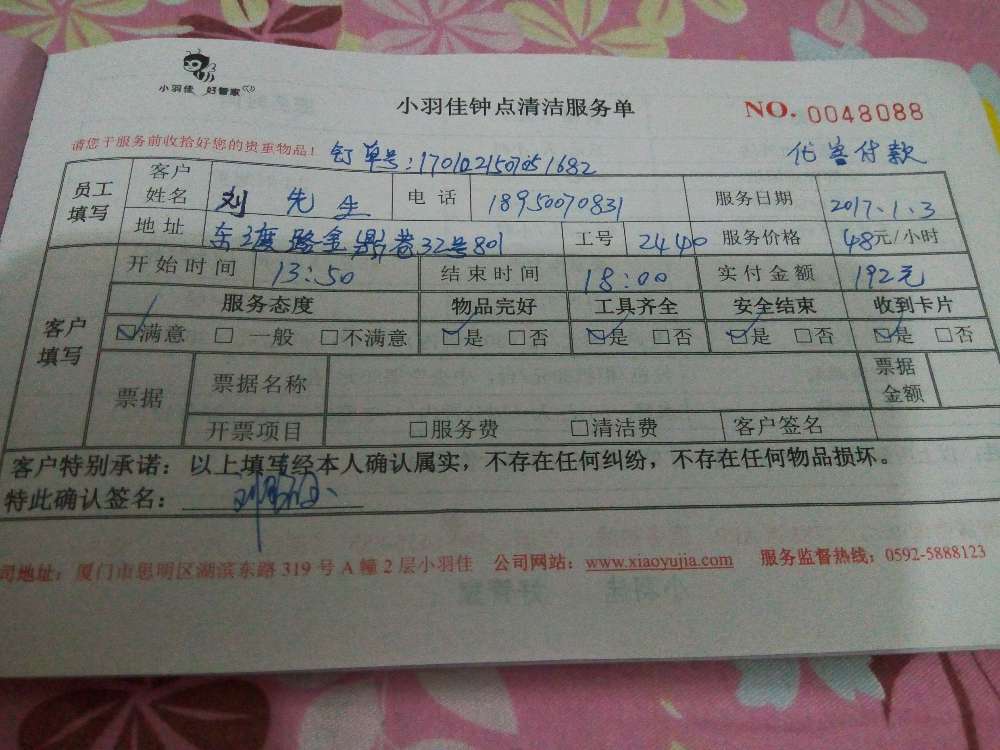 小羽佳 好管家
小羽佳钟点清洁服务单 NO. 0048088
请您于服务前收拾好您的贵重物品! 钉单号:1701021507051682 代客付款
员工填写 客户姓名 刘先生 电话 18950070831 服务日期 2017.1.3
地址 东渡路金鼎巷32号801 工号 2440 服务价格 48元/小时
客户填写 开始时间 13:50 结束时间 18:00 实付金额 192元
服务态度 物品完好 工具齐全 安全结束 收到卡片
☑满意 □一般 □不满意 ☑是 □否 ☑是 □否 ☑是 □否 ☑是 □否
票据 票据名称 票据金额
开票项目 □服务费 □清洁费 客户签名
客户特别承诺:以上填写经本人确认属实,不存在任何纠纷,不存在任何物品损坏。
特此确认签名:
司地址:厦门市思明区湖滨东路319号A幢2层小羽佳 公司网站:www.xiaoyujia.com 服务监督热线:0592-5888123